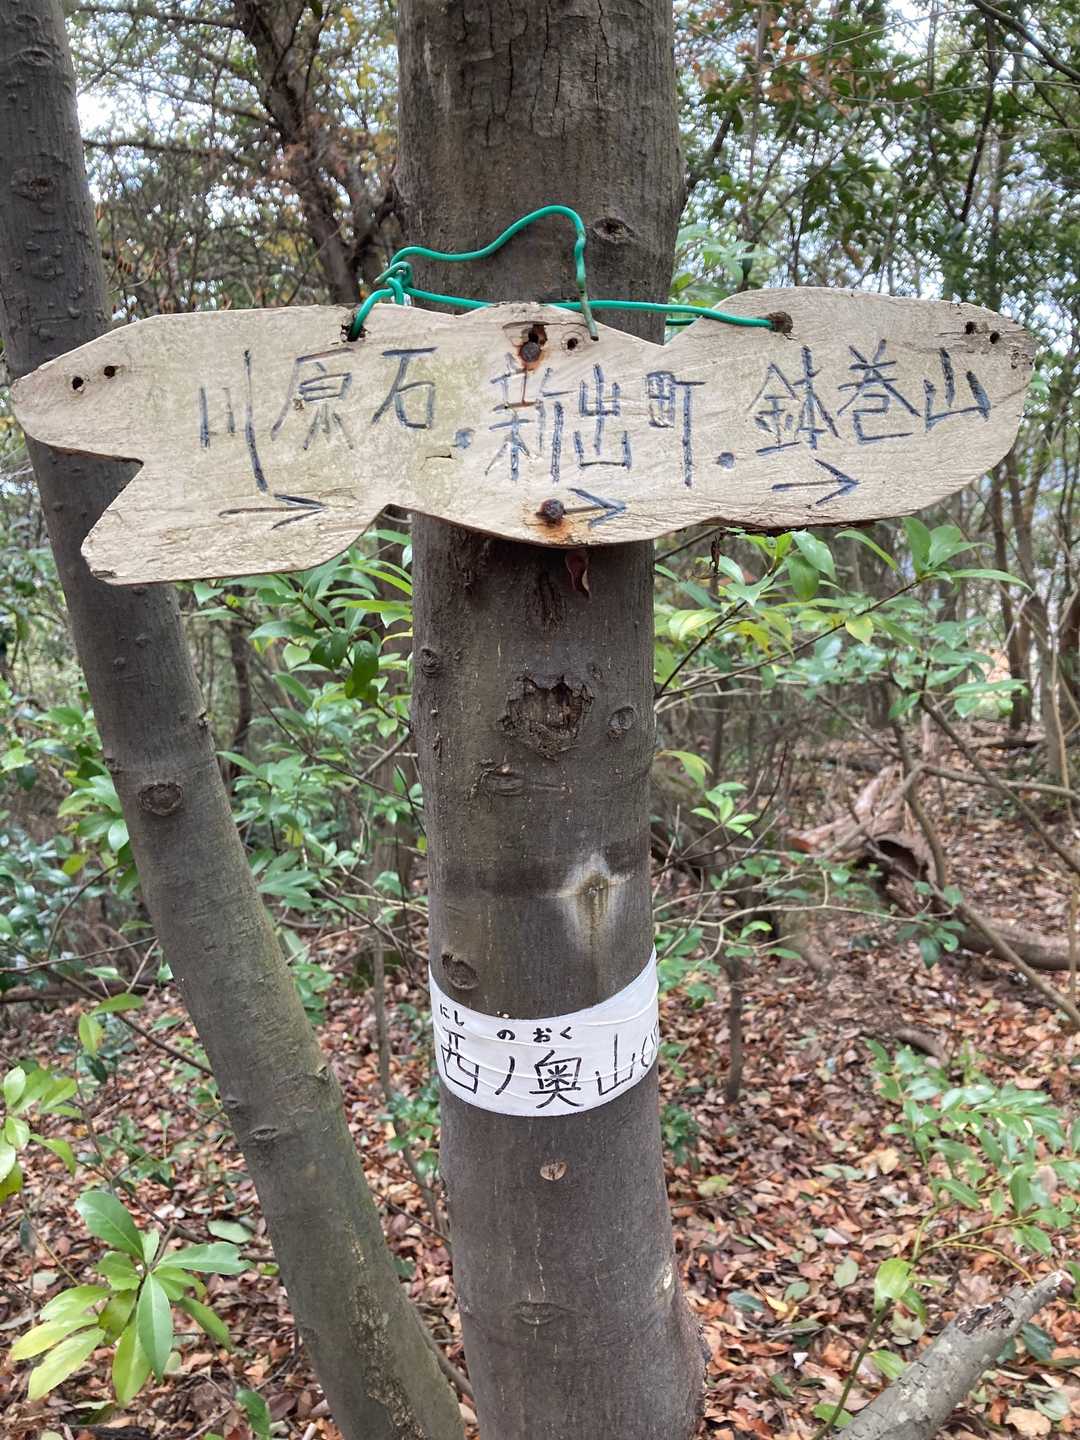 川原石・新出町・鉢巻山
→ → →
にし の おく
西ノ奥山